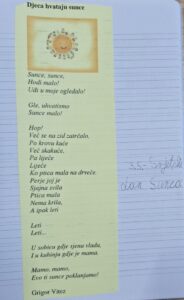 Djeca hvataju sunce
Sunce, sunce,
Hodi malo!
Uđi u moje ogledalo!
Gle, uhvatismo
Sunce malo!
Hop!
Već se na zid zatrčalo.
Po krovu kuće
Već skakuće,
Pa lijeće
Lijeće
Ko ptica mala na drveće.
Perje joj je
Sjajna svila
Ptica mala
Nema krila,
A ipak leti
Leti
Leti...
U sobicu gdje sjenu slada,
I u kuhinju gdje je mama.
Mamo, mamo,
Evo ti sunce poklanjamo!
Grigor Vitez
3.5. Svjetski
dan Sunca